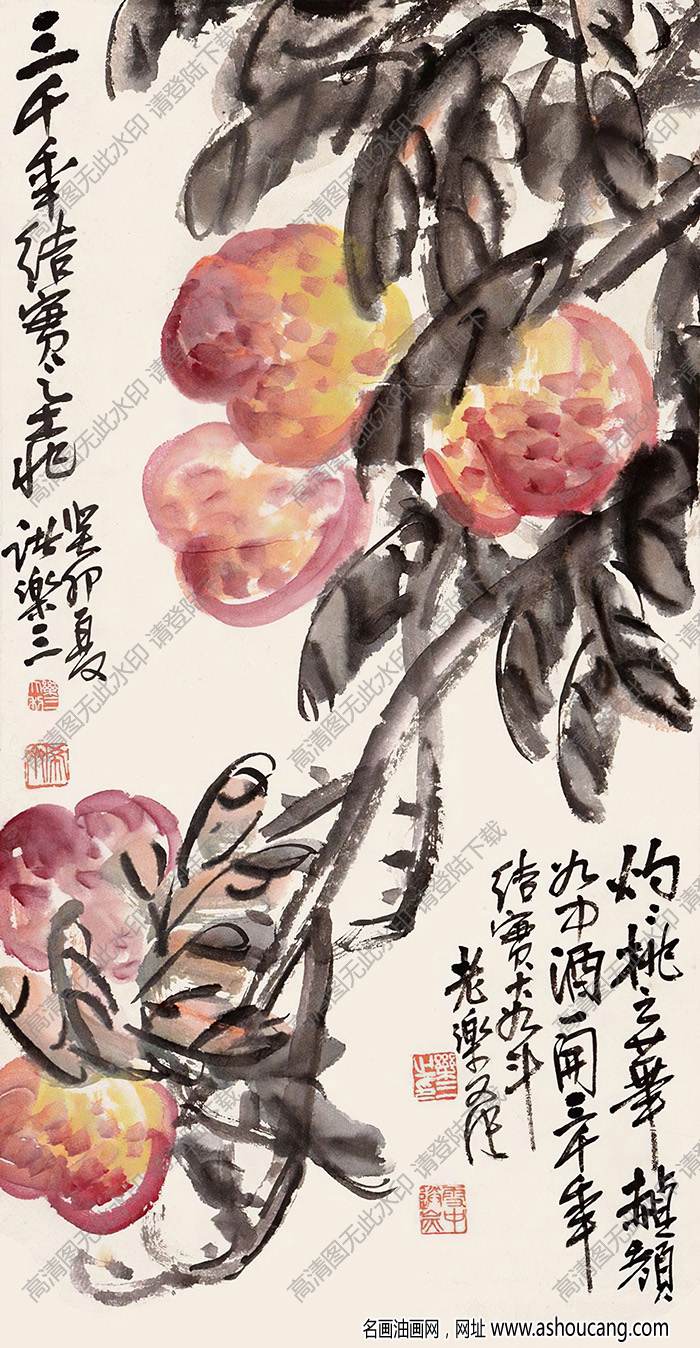 三千年结實之桃
癸卯夏
诸樂三
灼灼桃之華 赪顏
如中酒一開三千年
结實大如斗
老樂又作
高清图无此水印 请登陆下载
名画油画网，网址 www.ashoucang.com